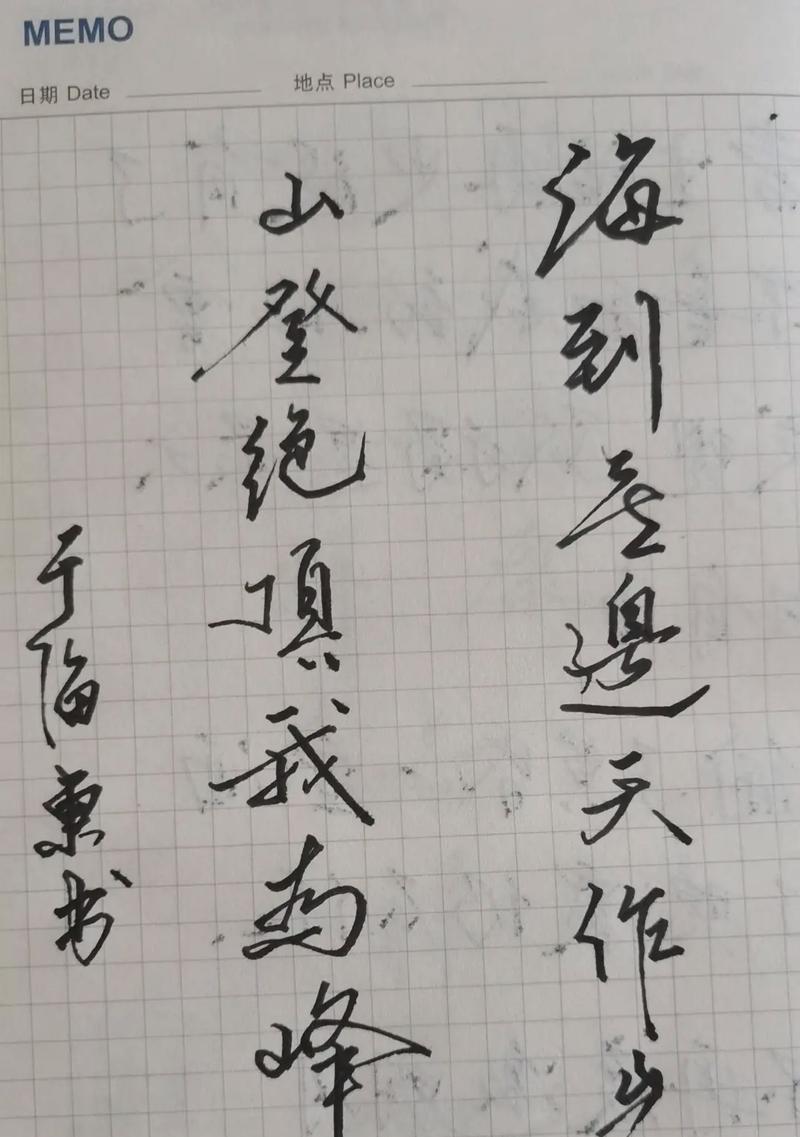 MEMO
日期 Date 地点 Place
海到無邊天作岸
山登絕頂我為峰
于海東书